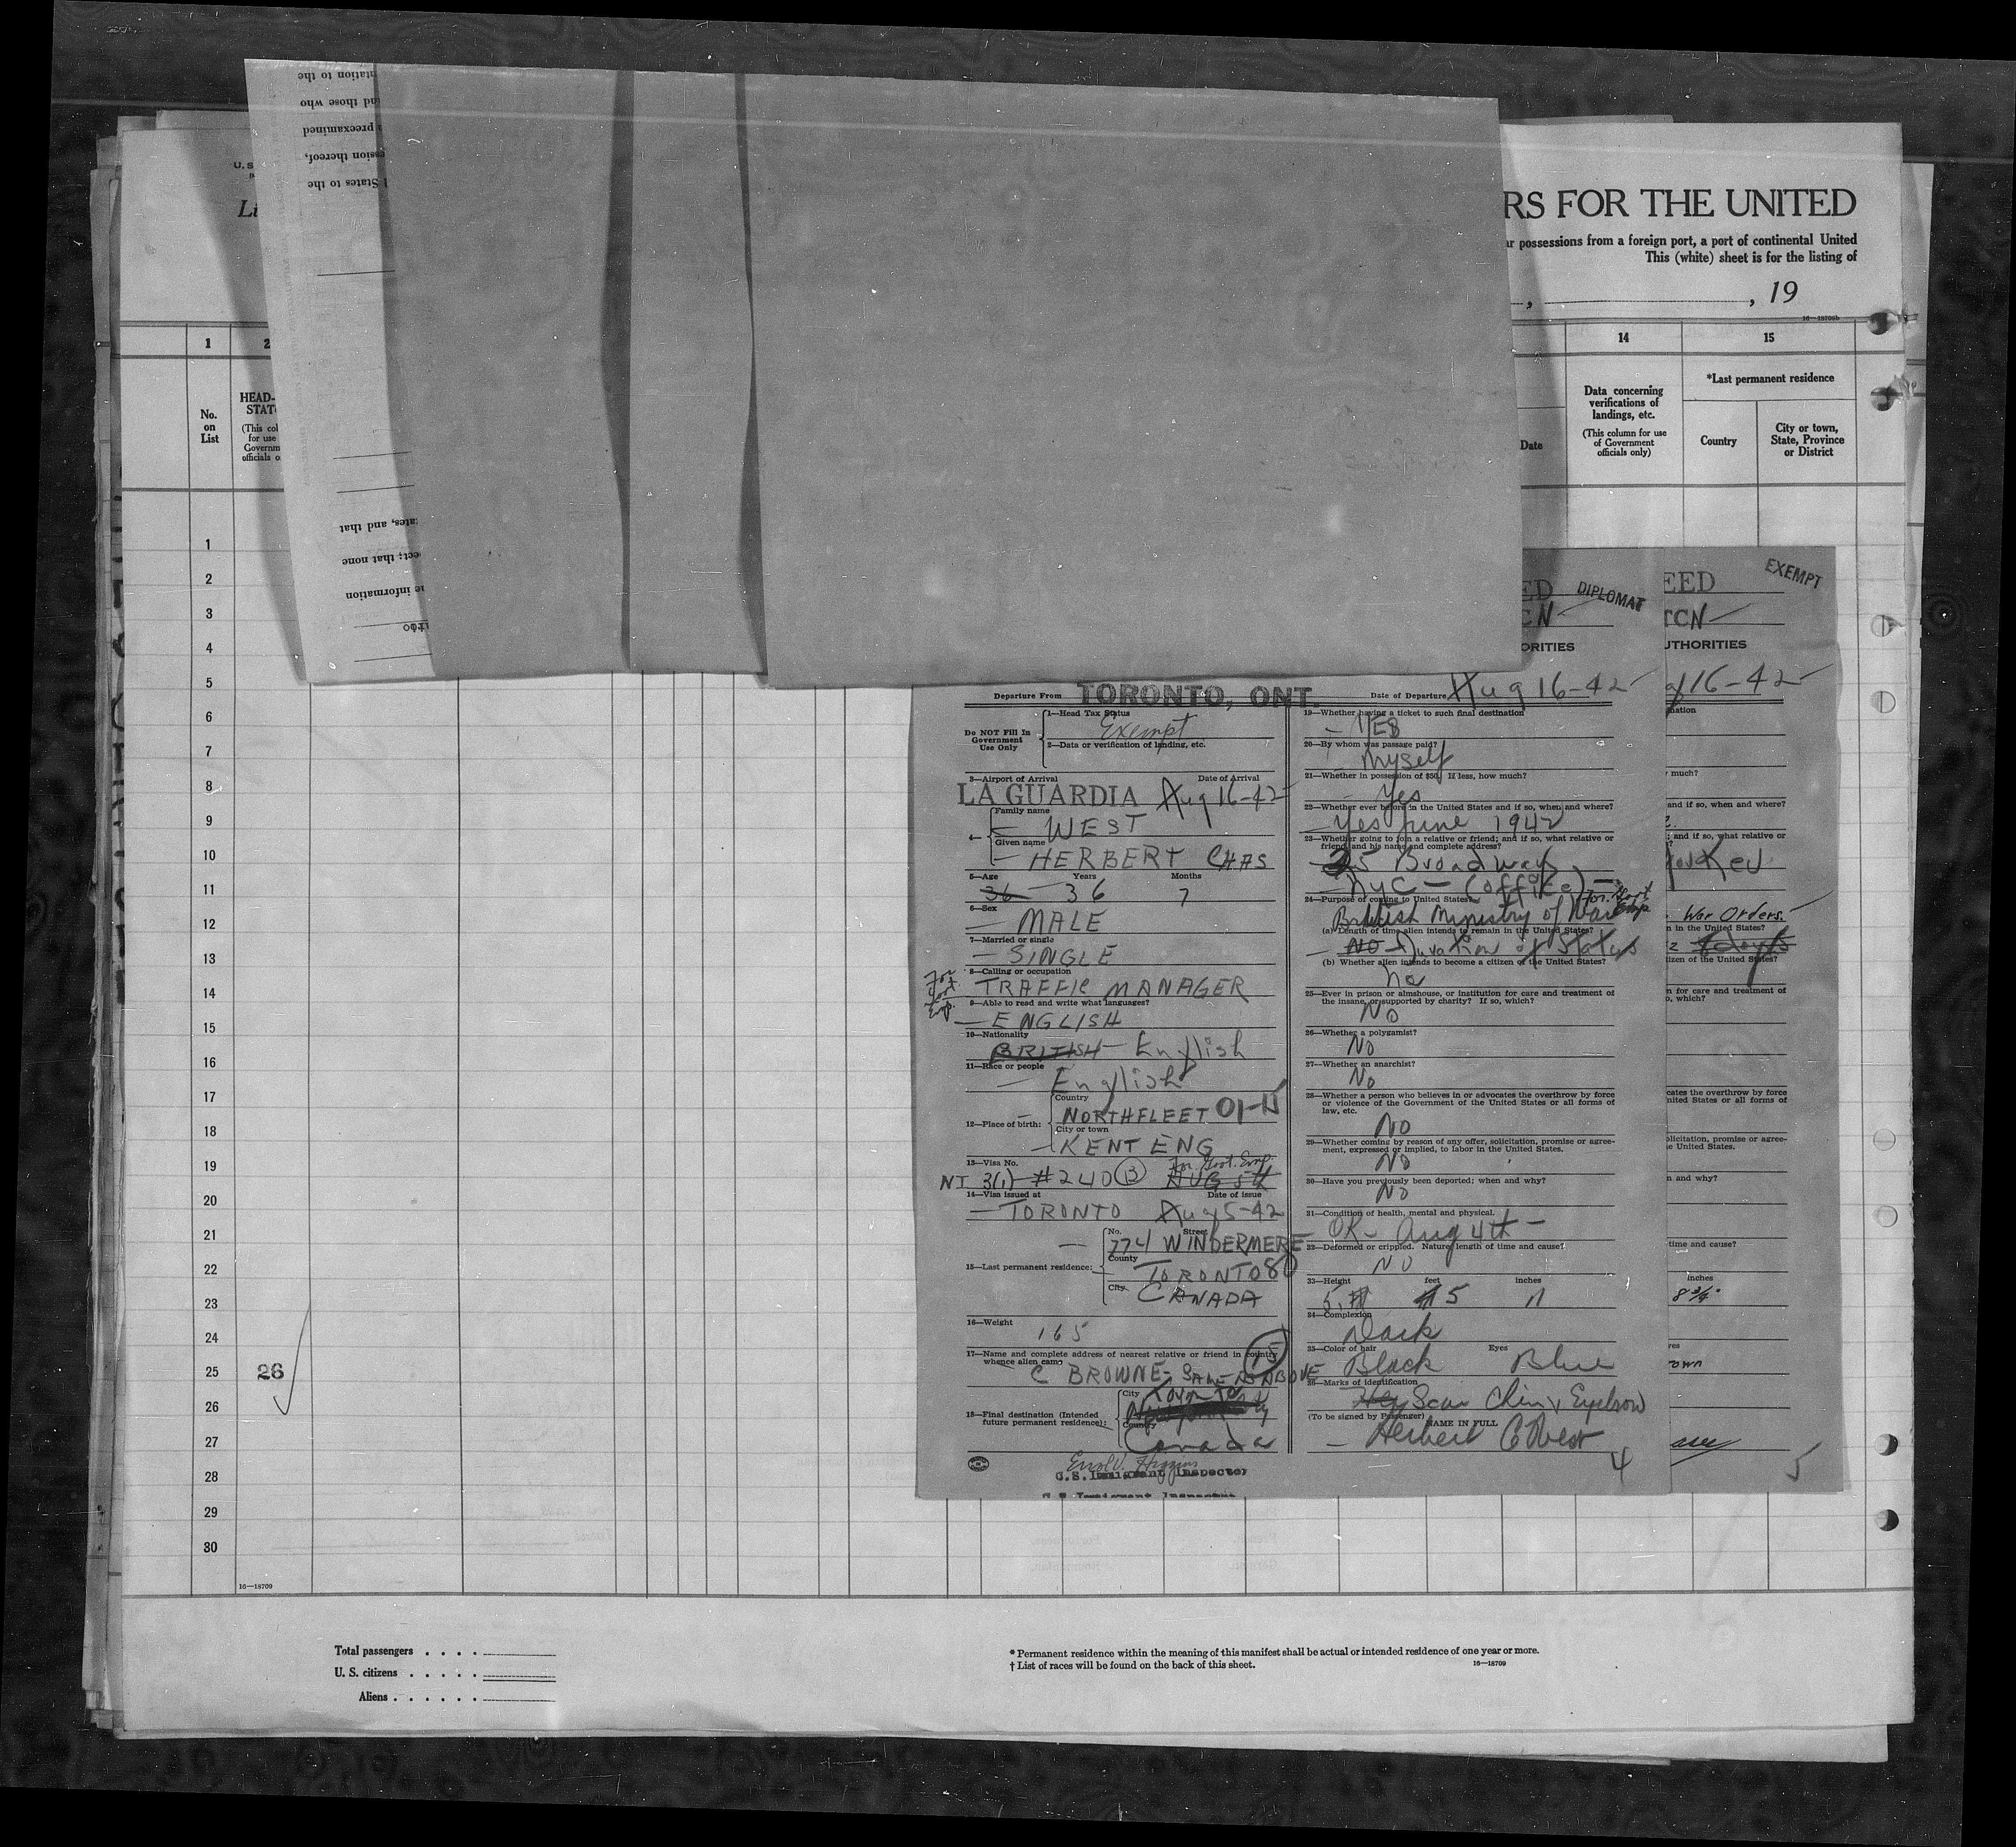 RS FOR THE UNITED
r possessions from a foreign port, a port of continental United
This (white) sheet is for the listing of
, 19
16—18709b
1
14
15
No.
on
List
HEAD-
Data concerning
verifications of
landings, etc.
(This column for use
of Government
officials only)
*Last permanent residence
Date
Country
City or town,
State, Province
or District
ntation to the
nd those who
preexamined
ession thereof,
States to the
ates, and that
ect; that none
e information
1
2
3
4
5
6
7
8
9
10
11
12
13
14
15
16
17
18
19
20
21
22
23
24
25 26
26
27
28
29
30
16—18709
DIPLOMAT
ORITIES
Departure From TORONTO, ONT.
Date of Departure Aug 16-42
Do NOT Fill In
Government
Use Only
1—Head Tax Status
Exempt
2—Data or verification of landing, etc.
3—Airport of Arrival Date of Arrival
LA GUARDIA Aug 16-42
4— Family name
WEST
Given name
HERBERT CHAS
5—Age Years Months
36 — 36 7
6—Sex
MALE
7—Married or single
SINGLE
8—Calling or occupation
For Govt Emp.
TRAFFIC MANAGER
9—Able to read and write what languages?
ENGLISH
10—Nationality
BRITISH — English
11—Race or people
English
12—Place of birth:
Country
NORTHFLEET
City or town
KENT ENG
13—Visa No.
For. Govt. Emp.
NI 3(1) #240 AUG 5th
14—Visa issued at Date of issue
TORONTO Aug 5-42
15—Last permanent residence:
No. Street
774 WINDERMERE
County
TORONTO 80
City
CANADA
16—Weight
165
17—Name and complete address of nearest relative or friend in country
whence alien came
C BROWNE- SAME AS ABOVE
15
18—Final destination (Intended
future permanent residence):
City
Toronto
County
Canada
U.S. Immigrant Inspector
U.S. Immigrant Inspector
19—Whether having a ticket to such final destination
YES
20—By whom was passage paid?
Myself
21—Whether in possession of $50. If less, how much?
Yes
22—Whether ever before in the United States and if so, when and where?
Yes June 1942
23—Whether going to join a relative or friend; and if so, what relative or
friend and his name and complete address?
25 Broadway
NYC — (office) —
24—Purpose of coming to United States? For. Govt Emp.
British Ministry of War
(a) Length of time alien intends to remain in the United States?
NO — Duration of Status
(b) Whether alien intends to become a citizen of the United States?
No
25—Ever in prison or almshouse, or institution for care and treatment of
the insane, or supported by charity? If so, which?
No
26—Whether a polygamist?
No
27—Whether an anarchist?
No
28—Whether a person who believes in or advocates the overthrow by force
or violence of the Government of the United States or all forms of
law, etc.
NO
29—Whether coming by reason of any offer, solicitation, promise or agree-
ment, expressed or implied, to labor in the United States.
No
30—Have you previously been deported; when and why?
No
31—Condition of health, mental and physical.
OK - Aug 4th -
32—Deformed or crippled. Nature, length of time and cause?
NO
33—Height feet inches
5 11
34—Complexion
Dark
35—Color of hair Eyes
Black Blue
36—Marks of identification
Scar Chin, Eyebrow
(To be signed by Passenger) NAME IN FULL
Herbert C West
4
EXEMPT
EED
TCN
UTHORITIES
16-42
nation
much?
and if so, when and where?
; and if so, what relative or
War Orders.
n in the United States?
izen of the United States?
n for care and treatment of
o, which?
cates the overthrow by force
nited States or all forms of
olicitation, promise or agree-
e United States.
n and why?
time and cause?
inches
8 3/4"
yes
own
5
Total passengers . . . .
U. S. citizens . . . . .
Aliens . . . . . .
* Permanent residence within the meaning of this manifest shall be actual or intended residence of one year or more.
† List of races will be found on the back of this sheet.
16—18709